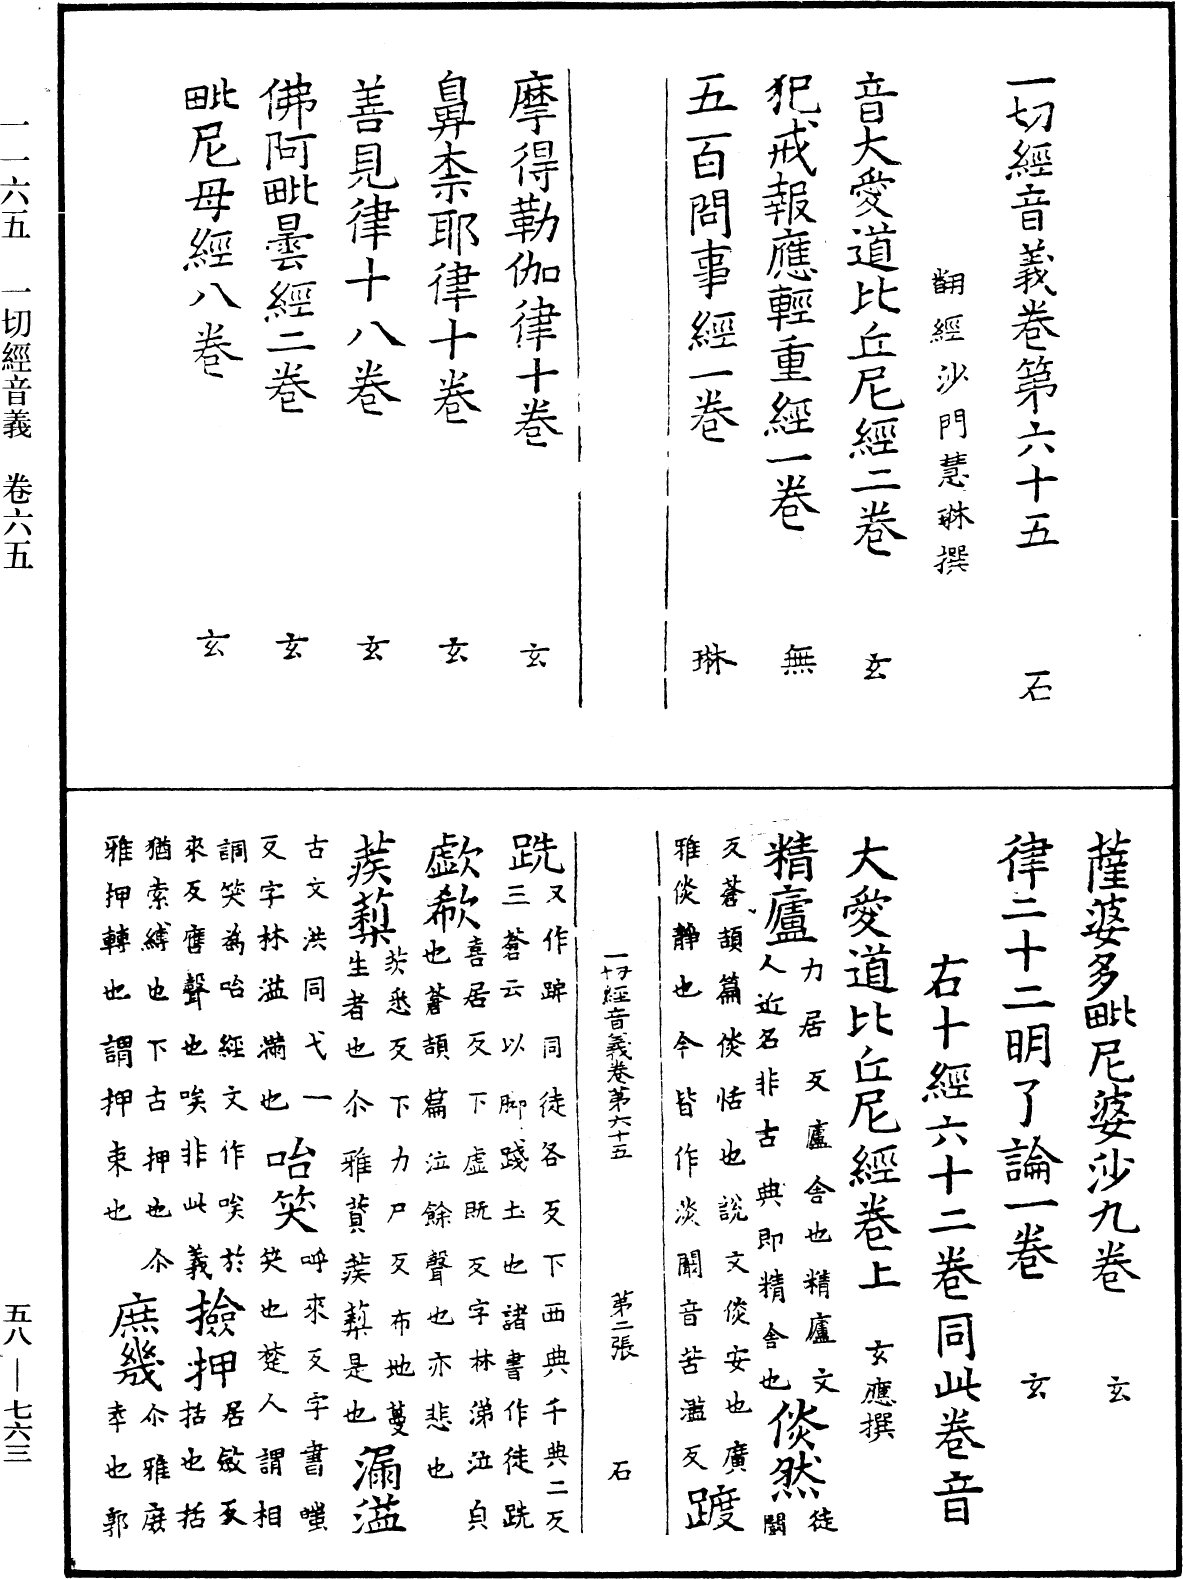 一切經音義卷第六十五　石
翻經沙門慧琳撰
音大愛道比丘尼經二卷　玄
犯戒報應輕重經一卷　無
五百問事經一卷　琳
摩得勒伽律十卷　玄
鼻柰耶律十卷　玄
善見律十八卷　玄
佛阿毗曇經二卷　玄
毗尼母經八卷　玄
薩婆多毗尼婆沙九卷　玄
律二十二明了論一卷　玄
右十經六十二卷同此卷音
大愛道比丘尼經卷上　玄應撰
精廬力居反廬舍也精廬文人近名非古典即精舍也倓然徒闞
反蒼頡篇倓恬也說文倓安也廣雅倓靜也今皆作淡闞音苦濫反踱
一切經音義卷第六十五　第二張　石
跣又作跿同徒各反下西典千典二反三蒼云以脚踐土也諸書作徒跣
歔欷喜居反下虛既反字林涕泣皃也蒼頡篇泣餘聲也亦悲也
蒺䔧茨悉反下力尸反布地蔓生者也尒雅薋蒺䔧是也漏溢
古文洪同弋一反字林溢滿也咍笑呼來反字書蚩笑也楚人謂相
調笑為咍經文作唉於來反譍聲也唉非此義撿押居斂反括也括
猶索縛也下古押也尒雅押轉也謂押束也庶幾尒雅庶幸也郭
一一六五　一切經音義　卷六五
五八—七六三